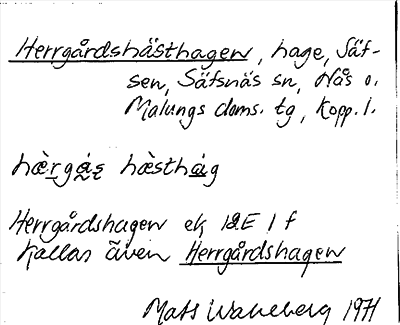 Herrgårdshästhagen, hage, Säf-
sen, Säfsnäs sn, Nås o.
Malungs doms. tg, Kopp. l.
hæ̀rgás hæ̀sthág
Herrgårdshagen ek 12E 1 f
Kallas även Herrgårdshagen
Mats Wahlberg 1971